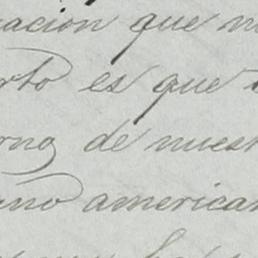 ación que n
rto es que
rno de nuest
ano american